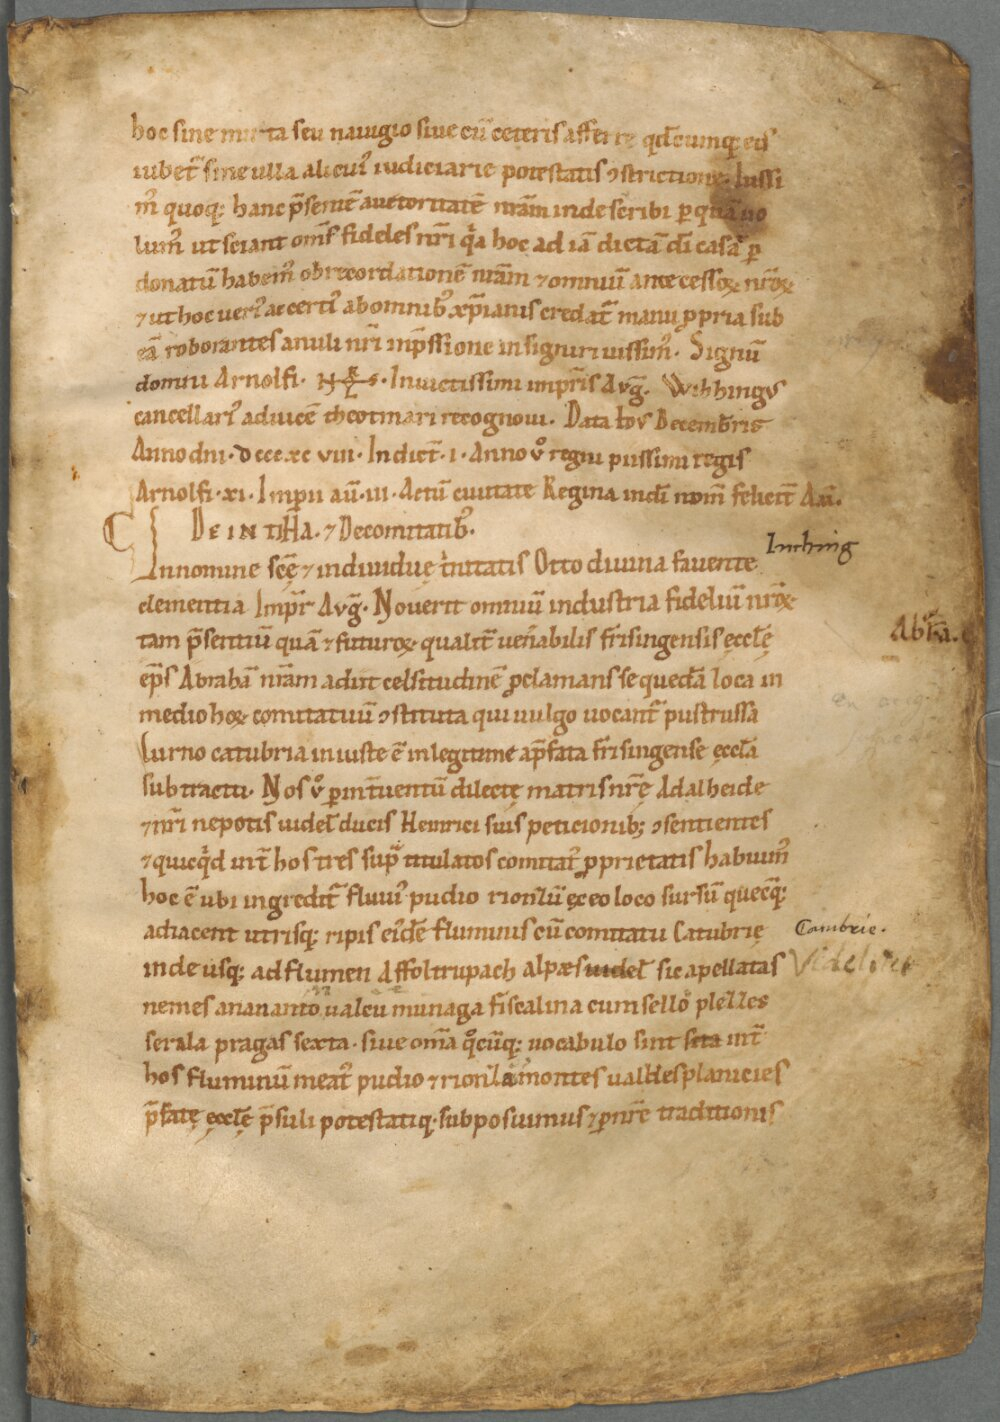 hoc sine muta seu nauigio siue cū ceteris afferre qd̄cumq; eis
iubet᷑ sine ulla alicui᾽ iudiciarie potestatis ↄstrictione. Iussi
m᾽ quoq; hanc p̄sentē auctoritatē nr̄am inde scribi p̱ quā uo
lum᾽ ut sciant om̄s fideles nr̄i q̇a hoc ad iā dictā dī casā p̱
donatū habem᾽ ob recordationē nr̄am ⁊ omniū antecessoꝝ nr̄oꝝ
⁊ ut hoc ueri᾽ ac certi᾽ ab omnib᾽ xp̄ianis credat᷑ manu ꝓpria sub
eā roborantes anuli nr̄i inp̄ssione insigniri iussim᾽. Signū
domni Arnolfi. Inuictissimi imp̱ris Avḡ. Wihhingvs
cancellari᾽ aduicē theotmari recognoui. Data
Anno dni. dcccxc viii. Indict̄. i. Anno v̊ regni piissimi regis
Arnolfi. xi. Imp̱ii aū. iii. Actū ciuitate Regina in dī nom̄ felicit̄ Am̄.
De intiha. ⁊ De comitatib᾽.
Inching
In nomine sc̄ę ⁊ indiuiduę t̍nitatis Otto diuina fauente
clementia Imp̱r Avḡ. Nouerit omniū industria fideliū nr̄oꝝ
tam p̄sentiū quā ⁊ futuroꝝ qualit̄ uen̄abilis fr̄isingensis ęccl̄ę
Abr̄a.
ep̄s Abrahā nr̄am adiit celsitudinē ꝓclamans se quedā loca in
medio hoꝝ comitatuū ↄstituta qui uulgo uocant᷑ pustrussa
Lurno catubria iniuste ē inlegitime ap̄fata fr̄isingense ęccl̄a
subtracti. Nos v̊ p̱ int̄uentū dilectę matris nr̄ę Adalheide
⁊ nr̄i nepotis uidel̄ ducis Heinrici suis peticionib; ↄsentientes
⁊ quicq̍d int̄ hos tres sup̄ titulatos comitat᾽ ꝓprietatis habuim᾽
hoc ē ubi ingredit᷑ fluui᾽ pudio ęx eo loco sursū quecq̄;
adiacent utrisq; ripis ei᾽dē fluminis cū comitatu Catubrię
Cambrie.
inde usq; ad flumen Affoltrupach alpæs uidel̄ sic apellatas
Videlicet
nemes ananantō ualcū munaga fiscalina cum sello plelles
serala pragas sexta. siue om̄a q̊cūq; uocabulo sint sita int̄
hos fluminū meat᾽ pudio ⁊ montes ualles planicies
p̄fatę ęccl̄ę p̄suli potestatiq. subposuimus ⁊ p̱ nr̄e traditionis